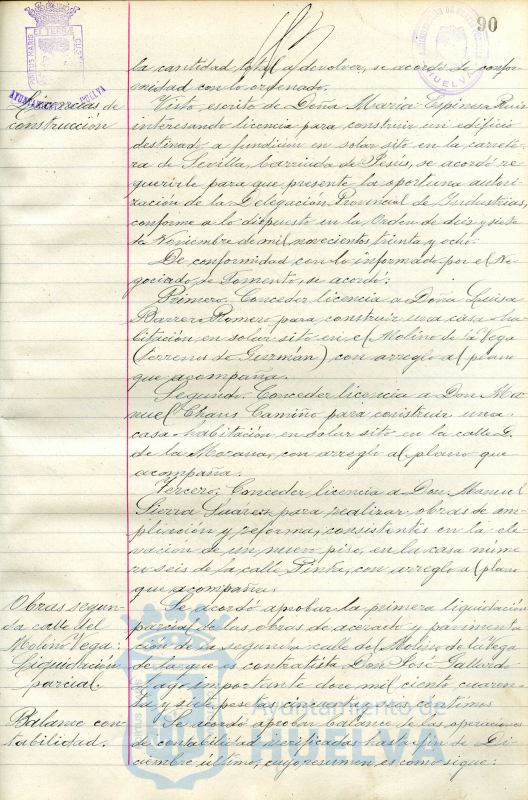 90
PORTUS MARIS ET TERRAE CUSTODIA
AYUNTAMIENTO HUELVA
HUELVA
la cantidad total a devolver, se acordó de confor-
midad con lo ordenado.
Licencias de
construcción
Visto, escrito de Doña María Espinosa Ruis
interesando licencia para construir un edificio
destinado a fundición en solar sito en la carrete-
ra de Sevilla, barriada de Jesús, se acordó re-
querirle para que presente la oportuna autori-
zación de la Delegación Provincial de Industrias,
conforme a lo dispuesto en la Orden de diez y siete
de Noviembre de mil novecientos treinta y ocho.
De conformidad con lo informado por el Ne-
gociado de Fomento, se acordó:
Primero. Conceder licencia a Doña Luisa
Barrero Romero para construir una casa-ha-
bitación en solar sito en el Molino de la Vega
(terrenos de Guzmán) con arreglo al plano
que acompaña.
Segundo. Conceder licencia a Don Ma-
nuel Chans Camiño para construir una
casa-habitación en solar sito en la calle L.
de la Morana, con arreglo al plano que
acompaña.
Tercero. Conceder licencia a Don Manuel
Sierra Suárez para realizar obras de am-
pliación y reforma, consistentes en la ele-
vación de un nuevo piso, en la casa núme-
ro seis de la calle Pinta, con arreglo al plano
que acompaña.
Obras segun-
da calle del
Molino Vega:
Liquidación
parcial.
Se acordó aprobar la primera liquidación
parcial de las obras de acerado y pavimenta-
ción de la segunda calle del Molino de la Vega
de la que es contratista Don José Gallardo
importante doce mil ciento cuaren-
ta y siete pesetas céntimos
Balance con-
tabilidad.
Se acordó aprobar balance de las operaciones
de contabilidad verificadas hasta fin de Di-
ciembre último, cuyo resumen es como sigue:
Ayuntamiento de
HUELVA